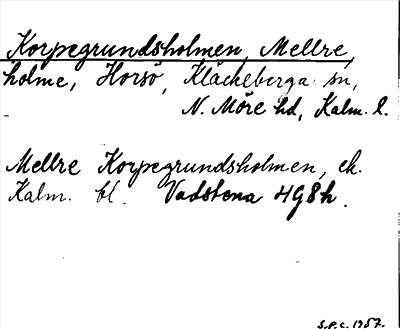 Korpegrundsholmen, Mellre,
holme, Horsö, Kläckeberga sn,
N. Möre hd, Kalm. l.
Mellre Korpegrundsholmen, ek.
Kalm. bl. Vadstena 4g8h.
S.P.C. 1957.